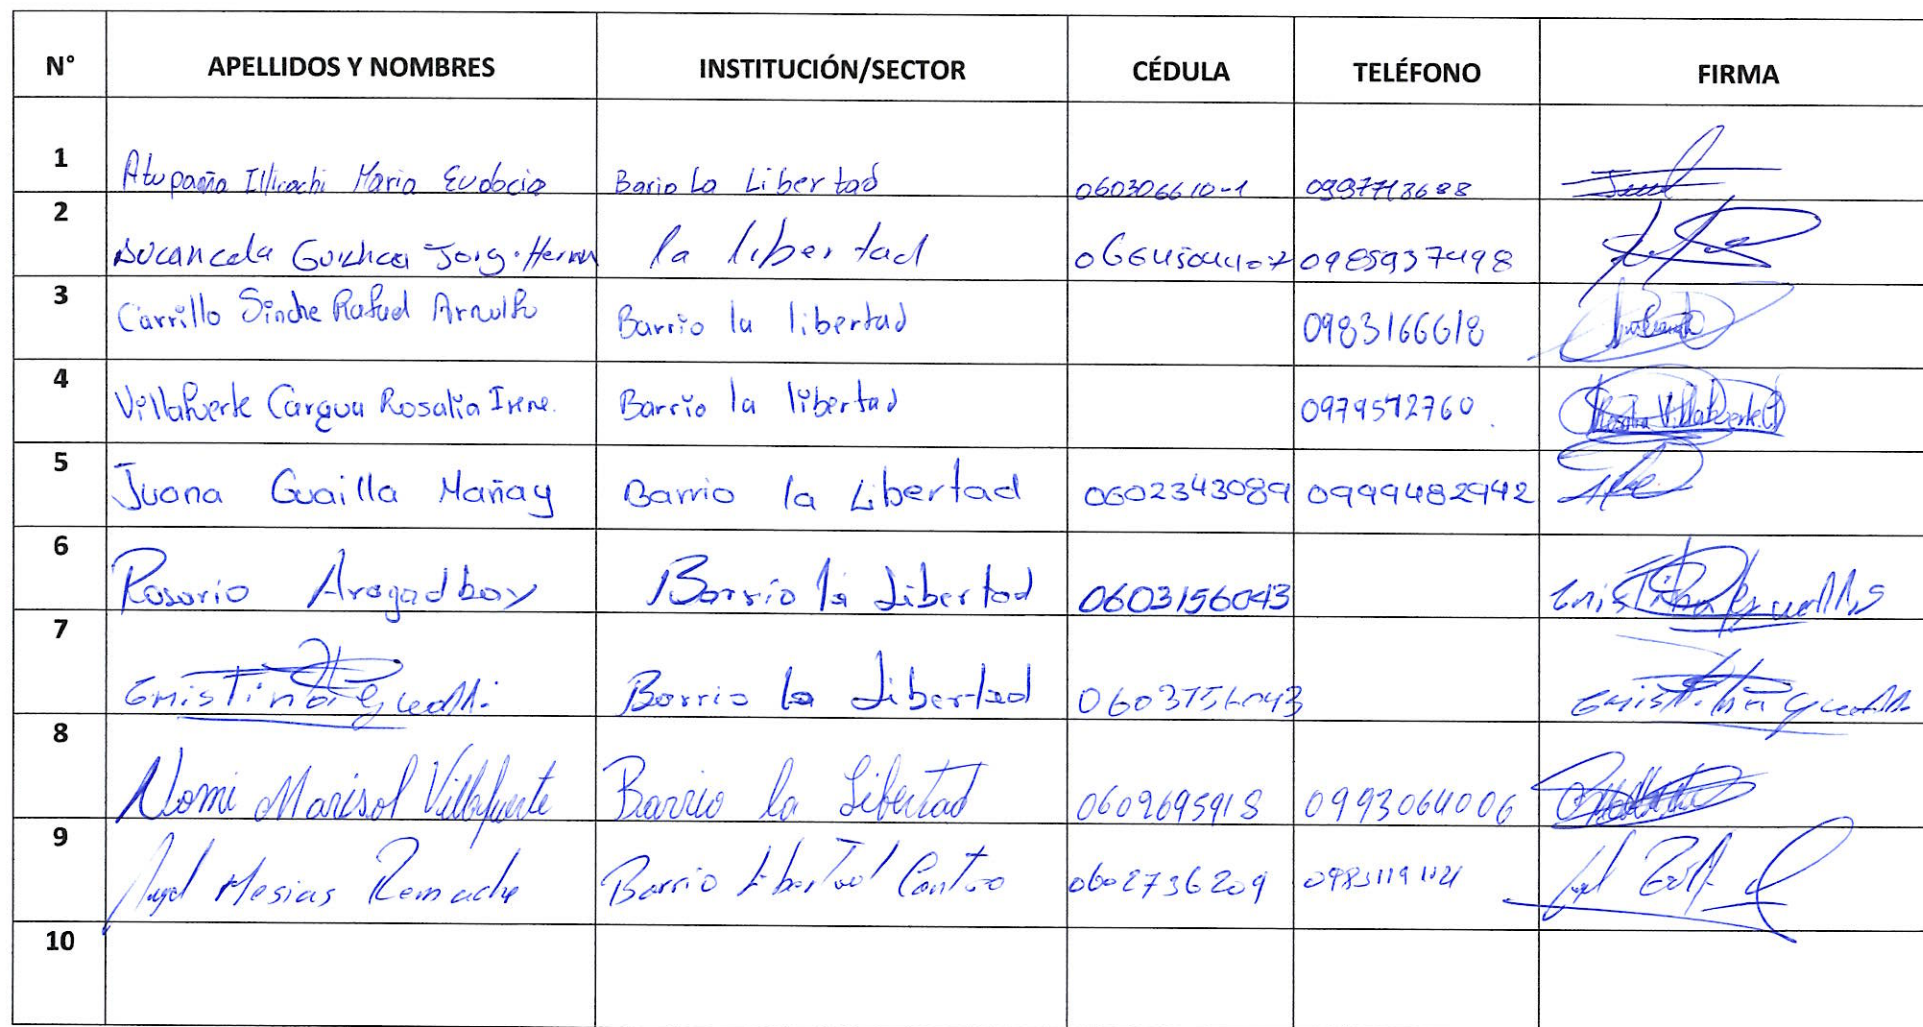 N° APELLIDOS Y NOMBRES INSTITUCIÓN/SECTOR CÉDULA TELÉFONO FIRMA
1 Atupaña Illicachi Maria Eudocia Bario La Libertad 060306610-1
2 la libertad 0985937498
3 Carrillo Sinche Rafael Arnulfo Barrio la libertad 0983166618
4 Villafuerte Cargua Rosalia Irene. Barrio la libertad 0979512760. Rosalia Villafuerte C
5 Juana Guailla Mañay Barrio la Libertad 0602343089 0999482942
6 Rosario Aragadbay Barrio la Libertad 0603156043
7 Barrio la Libertad
8 Nomi Marisol Villafuerte Barrio la Libertad 0602695918 0993064006
9 Angel Mesias Remache Barrio Libertad Centro 0602736209
10